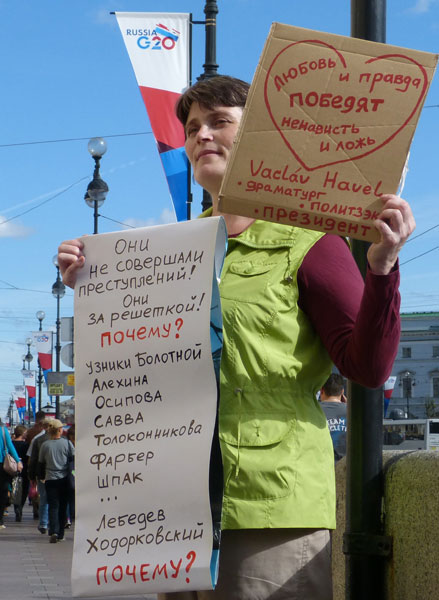 RUSSIA
G20
Любовь и правда
победят
ненависть
и ложь
Vacláv Havel
• драматург
• политзэк
• президент
Они
не совершали
преступлений!
Они
за решеткой!
почему?
узники Болотной
Алехина
Осипова
Савва
Толоконникова
Фарбер
Шпак
...
Лебедев
Ходорковский
почему?